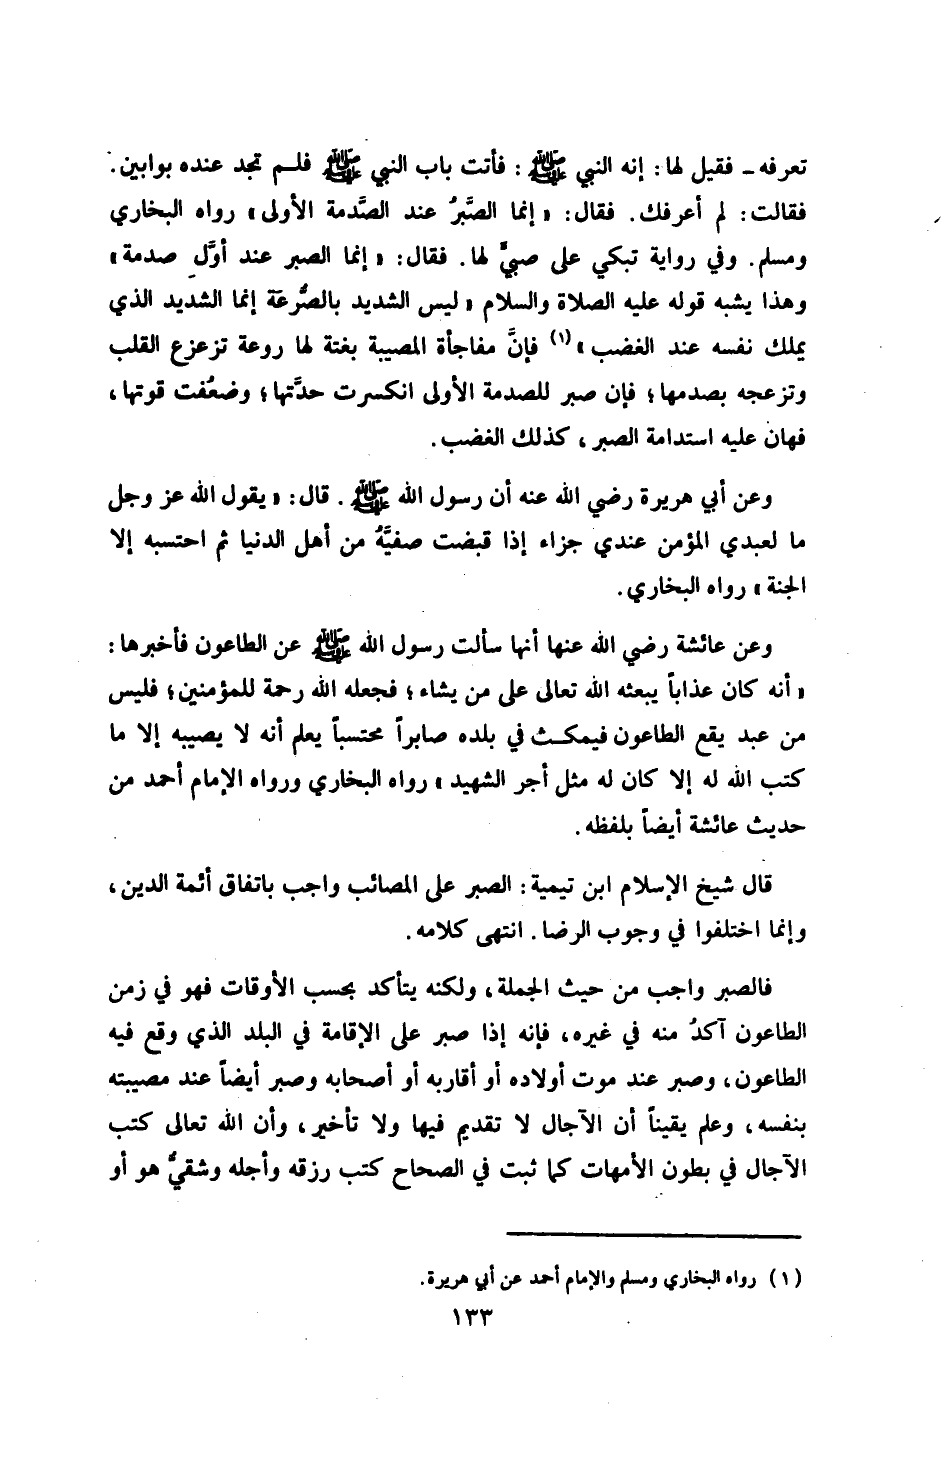 تعرفه ـ فقيل لها: إنه النبي ﷺ : فأتت باب النبي ﷺ فلـم تجد عنده بوابين.
فقالت: لم أعرفك. فقال: «إنما الصَّبرُ عند الصَّدمة الأولى» رواه البخاري
ومسلم. وفي رواية تبكي على صبيٍّ لها. فقال: «إنما الصبر عند أوَّلِ صدمة»
وهذا يشبه قوله عليه الصلاة والسلام «ليس الشديد بالصُّرعَة إنما الشديد الذي
يملك نفسه عند الغضب»(١) فإنَّ مفاجأة المصيبة بغتة لها روعة تزعزع القلب
وتزعجه بصدمها؛ فإن صبر للصدمة الأولى انكسرت حدَّتها؛ وضعُفت قوتها،
فهان عليه استدامة الصبر، كذلك الغضب.
وعن أبي هريرة رضي الله عنه أن رسول الله ﷺ . قال: «يقول الله عز وجل
ما لعبدي المؤمن عندي جزاء إذا قبضت صفيَّهُ من أهل الدنيا ثم احتسبه إلا
الجنة» رواه البخاري.
وعن عائشة رضي الله عنها أنها سألت رسول الله ﷺ عن الطاعون فأخبرها:
«أنه كان عذاباً يبعثه الله تعالى على من يشاء؛ فجعله الله رحمة للمؤمنين؛ فليس
من عبد يقع الطاعون فيمكـث في بلده صابراً محتسباً يعلم أنه لا يصيبه إلا ما
كتب الله له إلا كان له مثل أجر الشهيد» رواه البخاري ورواه الإمام أحمد من
حديث عائشة أيضاً بلفظه.
قال شيخ الإسلام ابن تيمية: الصبر على المصائب واجب باتفاق أئمة الدين،
وإنما اختلفوا في وجوب الرضا. انتهى كلامه.
فالصبر واجب من حيث الجملة، ولكنه يتأكد بحسب الأوقات فهو في زمن
الطاعون آكدُ منه في غيره، فإنه إذا صبر على الإقامة في البلد الذي وقع فيه
الطاعون، وصبر عند موت أولاده أو أقاربه أو أصحابه وصبر أيضاً عند مصيبته
بنفسه، وعلم يقيناً أن الآجال لا تقديم فيها ولا تأخير، وأن الله تعالى كتب
الآجال في بطون الأمهات كما ثبت في الصحاح كتب رزقه وأجله وشقيٌّ هو أو
(١) رواه البخاري ومسلم والإمام أحمد عن أبي هريرة.
١٣٣